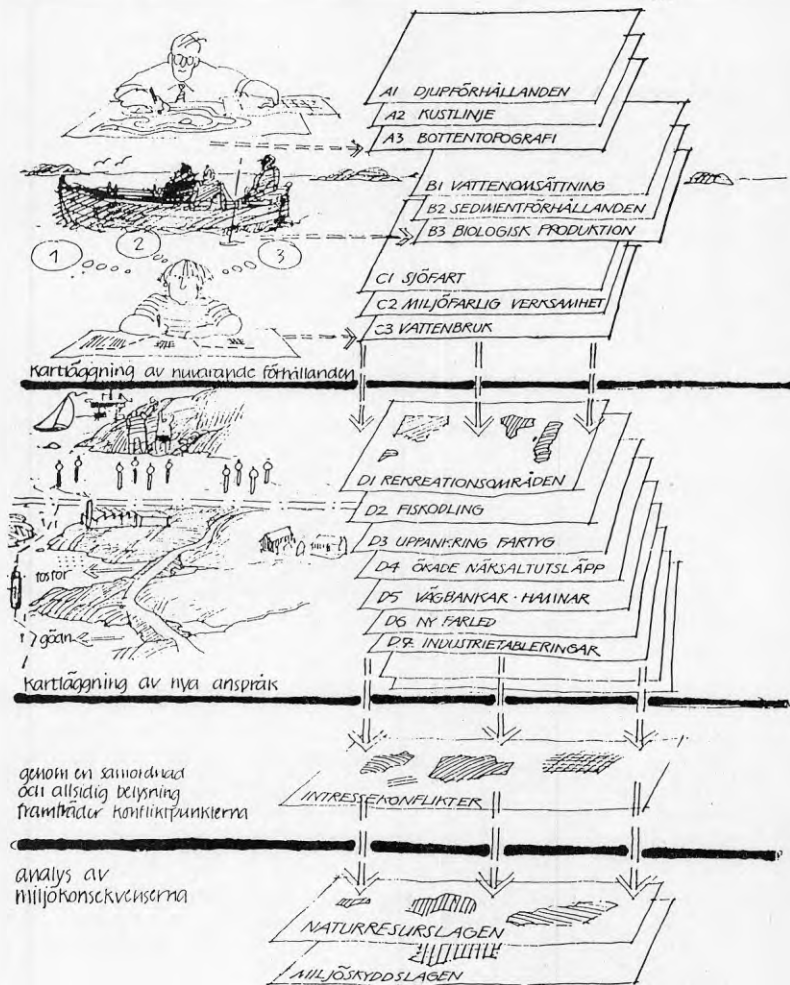 A1 DJUPFÖRHÅLLANDEN
A2 KUSTLINJE
A3 BOTTENTOPOGRAFI
B1 VATTENOMSÄTTNING
B2 SEDIMENTFÖRHÅLLANDEN
B3 BIOLOGISK PRODUKTION
1 2 3
C1 SJÖFART
C2 MILJÖFARLIG VERKSAMHET
C3 VATTENBRUK
kartläggning av nuvarande förhållanden
D1 REKREATIONSOMRÅDEN
D2 FISKODLING
D3 UPPANKRING FARTYG
D4 ÖKADE NÄRSALTUTSLÄPP
D5 VÄGBANKAR · HAMNAR
D6 NY FARLED
D7 INDUSTRIETABLERINGAR
fosfor
gödn
kartläggning av nya anspråk
genom en samordnad
och allsidig belysning
framträder konfliktpunkterna
INTRESSEKONFLIKTER
analys av
miljökonsekvenserna
NATURRESURSLAGEN
MILJÖSKYDDSLAGEN